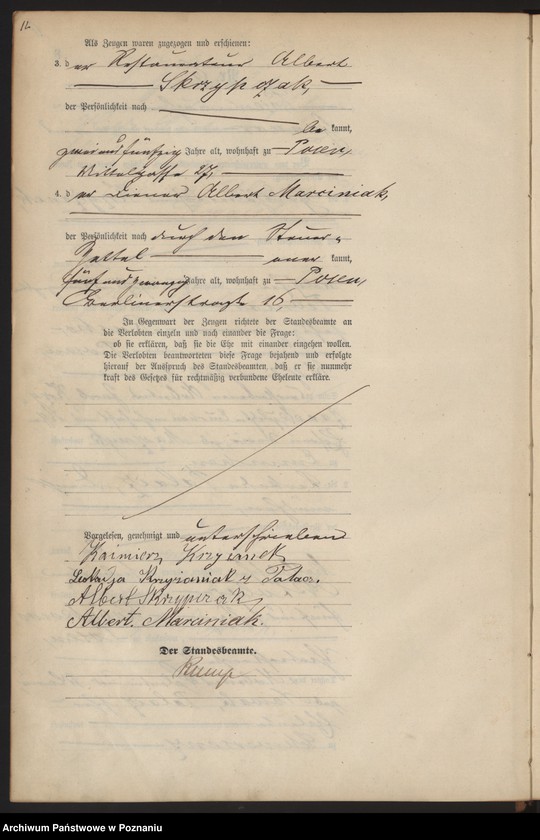 Als Zeugen waren zugezogen und erschienen:
3. der Restaurateur Albert
Skrzypczak,
der Persönlichkeit nach
be kannt,
zweiundfünfzig Jahre alt, wohnhaft zu Posen,
Mittelgasse 27,
4. der Diener Albert Marciniak,
der Persönlichkeit nach durch den Steuer-
Zettel aner kannt,
fünfundzwanzig Jahre alt, wohnhaft zu Posen,
Berlinerstraße 16,
In Gegenwart der Zeugen richtete der Standesbeamte an
die Verlobten einzeln und nach einander die Frage:
ob sie erklären, daß sie die Ehe mit einander eingehen wollen.
Die Verlobten beantworteten diese Frage bejahend und erfolgte
hierauf der Ausspruch des Standesbeamten, daß er sie nunmehr
kraft des Gesetzes für rechtmäßig verbundene Eheleute erkläre.
Vorgelesen, genehmigt und unterschrieben
Kazimierz
Krzyzaniak z
Albert Skrzypczak
Albert. Marciniak.
Der Standesbeamte.
Archiwum Państwowe w Poznaniu